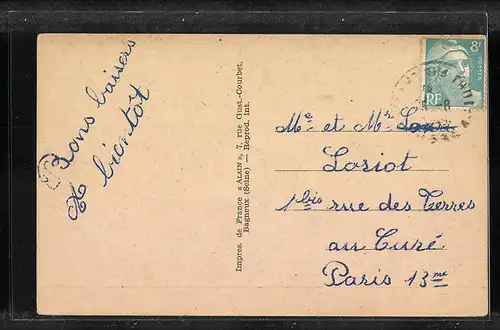 Bons baisers
A bientôt
Impres. de France « ALAIN », 7, rue Gust.-Courbet,
Bagneux (Seine) — Reprod. int.
8F
POSTES
RF
Me et Mr
Loriot
1bis rue des Terres
au Curé
Paris 13me